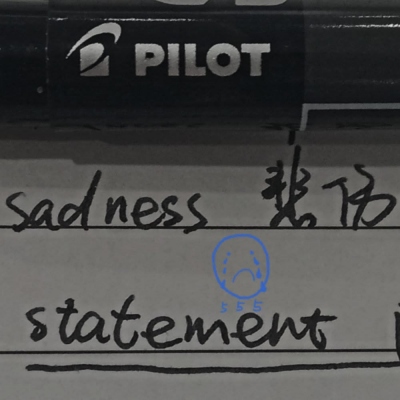 PILOT
sadness 悲伤
555
statement